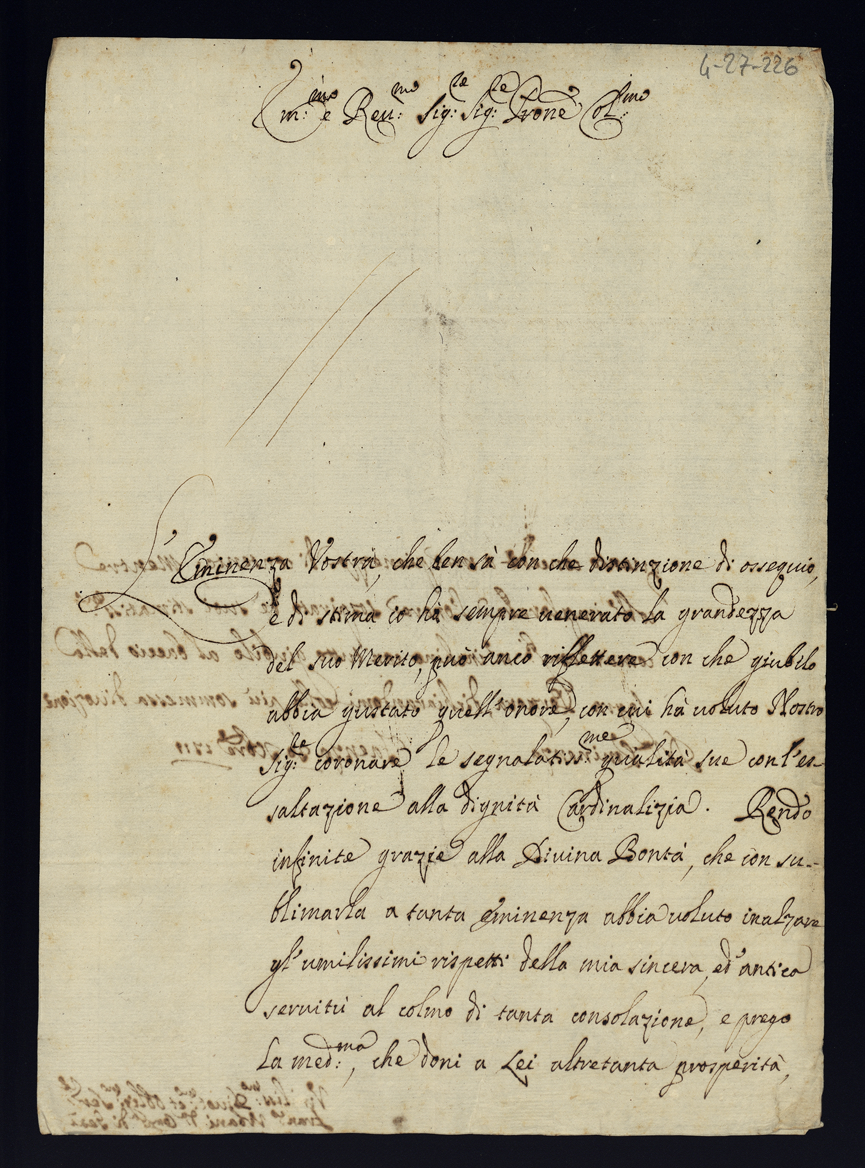 4-27-226
Em:mo e Reu:mo Sig:re Sig:re Prone Col:mo
L'Eminenza Vostra, che ben sà con che distinzione di ossequio,
e di stima io hò sempre uenerato la grandezza
del suo Merito, può anco riflettere con che giubilo
abbia gustato quell'onore, con cui hà uoluto Nostro
Sig:re coronare le segnalatis:me qualità sue con l'es-
saltazione alla dignità Cardinalizia. Rendo
infinite grazie alla Divina Bontà, che con su-
blimarla a tanta Eminenza abbia uoluto inalzare
gl'umilissimi rispetti della mia sincera, ed'antica
seruitù al colmo di tanta consolazione, e prego
la med:ma, che doni a Lei altretanta prosperità,